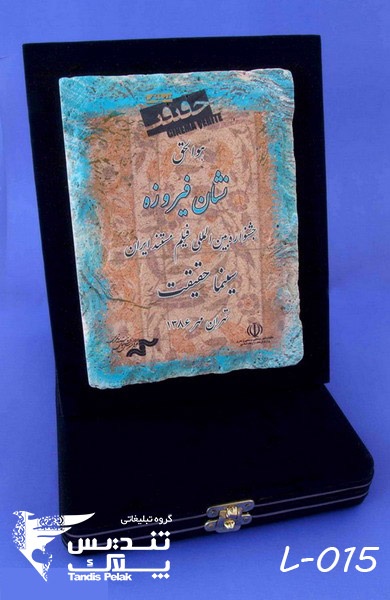 حقیقت
CINEMA VERITE
هوالحق
نشان فیروزه
جشنواره بین المللی فیلم مستند ایران
سینما حقیقت
تهران مهر ۱۳۸۶
گروه تبلیغاتی
تندیس
پلاک
Tandis Pelak
L-015